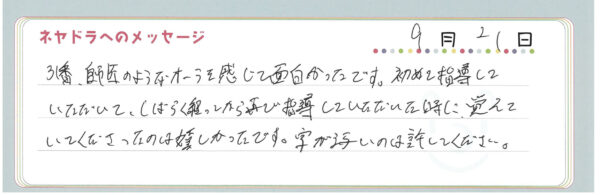 ネヤドラへのメッセージ
9月21日
引番、師匠のようなオーラを感じて面白かったです。初めて指導して
いただいて、しばらく経ってから再び指導していただいた時に、覚えて
いてくださったのは嬉しかったです。字が汚いのは許してください。